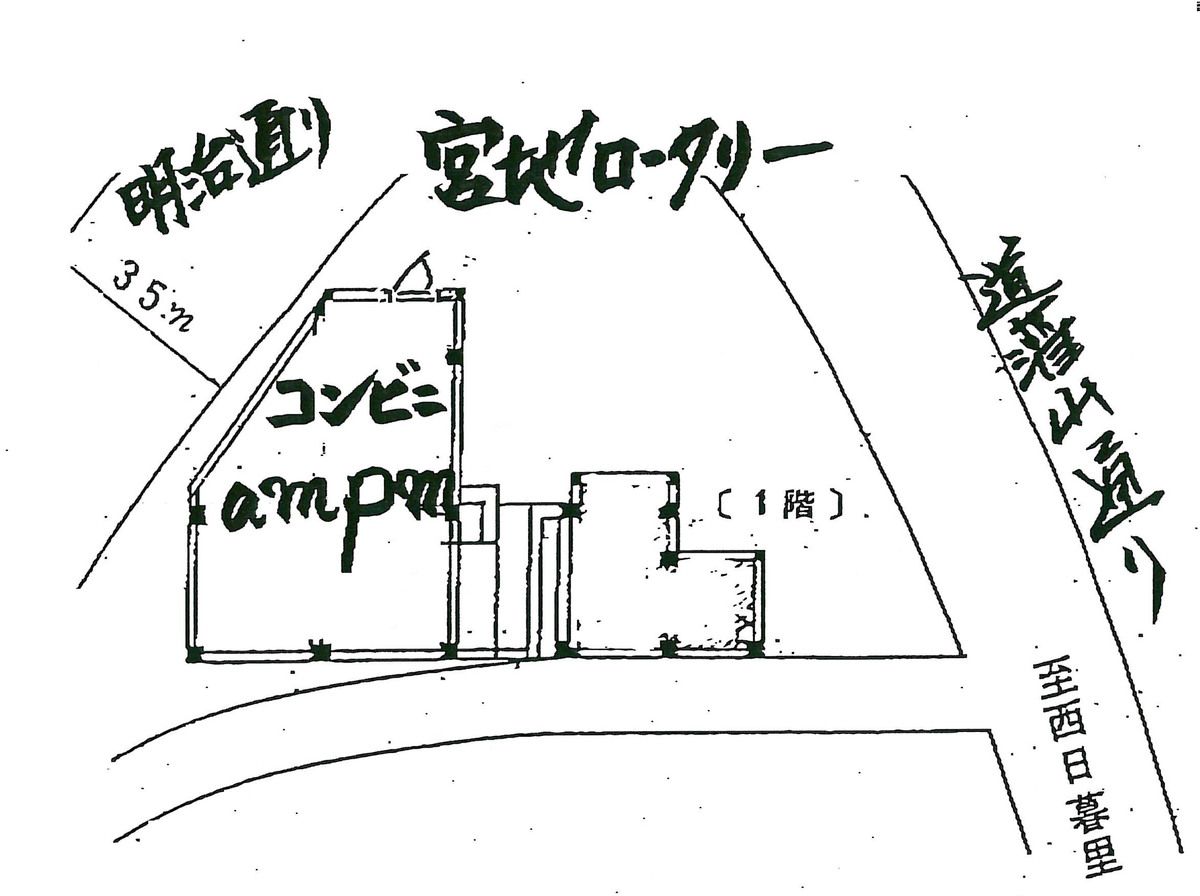 明治通り
宮地ロータリー
35m
道灌山通り
コンビニ
ampm
〔1階〕
至西日暮里